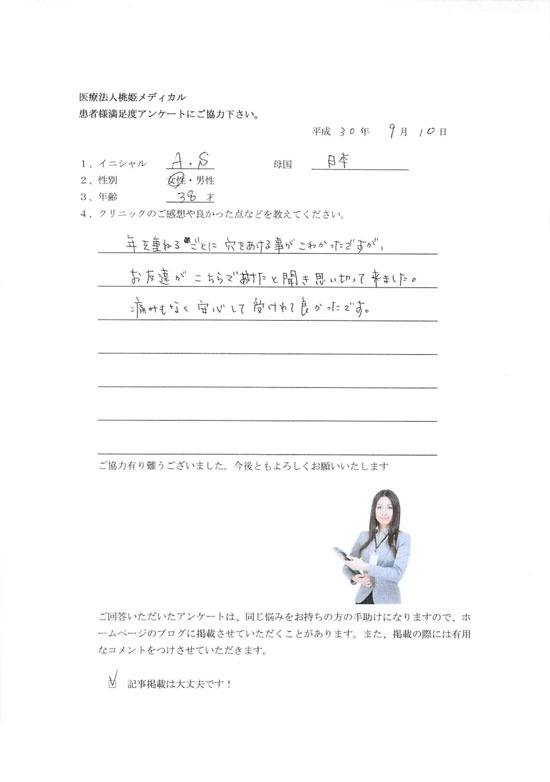 医療法人桃姫メディカル
患者様満足度アンケートにご協力下さい。
平成 30 年 9 月 10 日
1、イニシャル A・S 母国 日本
2、性別 女性・男性
3、年齢 38 才
4、クリニックのご感想や良かった点などを教えてください。
年を重ねるごとに穴をあける事がこわかったですが、
お友達がこちらであけたと聞き思い切って来ました。
痛みもなく安心して受けれて良かったです。
ご協力有り難うございました。今後ともよろしくお願いいたします
ご回答いただいたアンケートは、同じ悩みをお持ちの方の手助けになりますので、ホ
ームページのブログに掲載させていただくことがあります。また、掲載の際には有用
なコメントをつけさせていただきます。
☑ 記事掲載は大丈夫です！